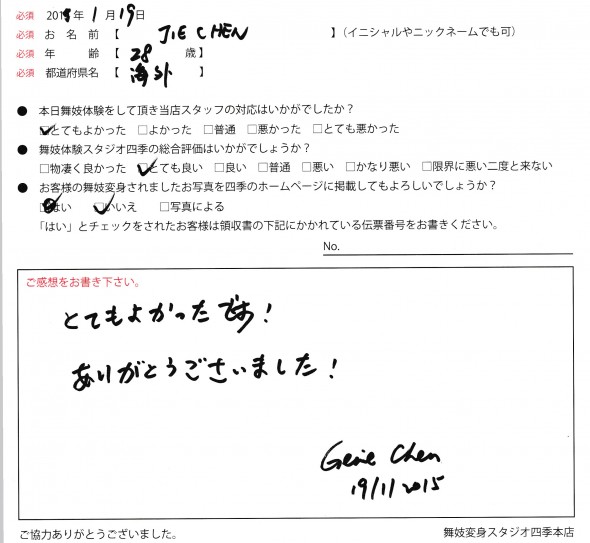 必須 2015年1月19日
必須 お名前【 JIE CHEN 】(イニシャルやニックネームでも可)
必須 年齢【 28 歳】
必須 都道府県名【 海外 】
● 本日舞妓体験をして頂き当店スタッフの対応はいかがでしたか?
☑とてもよかった □よかった □普通 □悪かった □とても悪かった
● 舞妓体験スタジオ四季の総合評価はいかがでしょうか?
□物凄く良かった ☑とても良い □良い □普通 □悪い □かなり悪い □限界に悪い二度と来ない
● お客様の舞妓変身されましたお写真を四季のホームページに掲載してもよろしいでしょうか?
☑はい ☑いいえ □写真による
「はい」とチェックをされたお客様は領収書の下記にかかれている伝票番号をお書きください。
No.
ご感想をお書き下さい。
とてもよかったです!
ありがとうございました!
Genie Chen
19/11 2015
ご協力ありがとうございました。 舞妓変身スタジオ四季本店